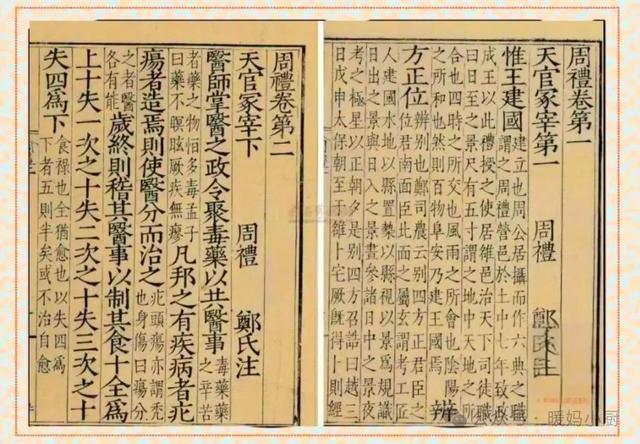 周禮卷第一
天官冢宰第一 周禮 鄭氏注
惟王建國 建立也周公居攝而作六典之職
謂之周禮營邑於土中七年致政
成王以此禮授之使居雒邑治天下司徒職
曰日至之景尺有五寸謂之地中天地之所
合也四時之所交也風雨之所會也陰陽
之所和也然則百物阜安乃建王國焉 辨
方正位 辨別也鄭司農云別四方正君臣之
位君南面臣北面之屬玄謂考工匠
人建國水地以縣置槷以縣視以景為規識
日出之景與日入之景晝參諸日中之景夜
考之極星以正朝夕是別四方召誥曰越三
日戊申太保朝至于雒卜宅厥既得卜則經
周禮卷第二
天官冢宰下 周禮 鄭氏注
醫師掌醫之政令聚毒藥以共醫事 毒藥藥
之辛苦
者藥之物恒多毒孟子
曰藥不瞑眩厥疾無瘳 凡邦之有疾病者疕
瘍者造焉則使醫分而治之 疕頭瘍亦謂禿
也身傷曰瘍分
之者醫
各有能 歲終則稽其醫事以制其食十全為
上十失一次之十失二次之十失三次之十
失四為下 食祿也全猶愈也以失四為
下者五則半矣或不治自愈
公众号 · 暖妈小厨